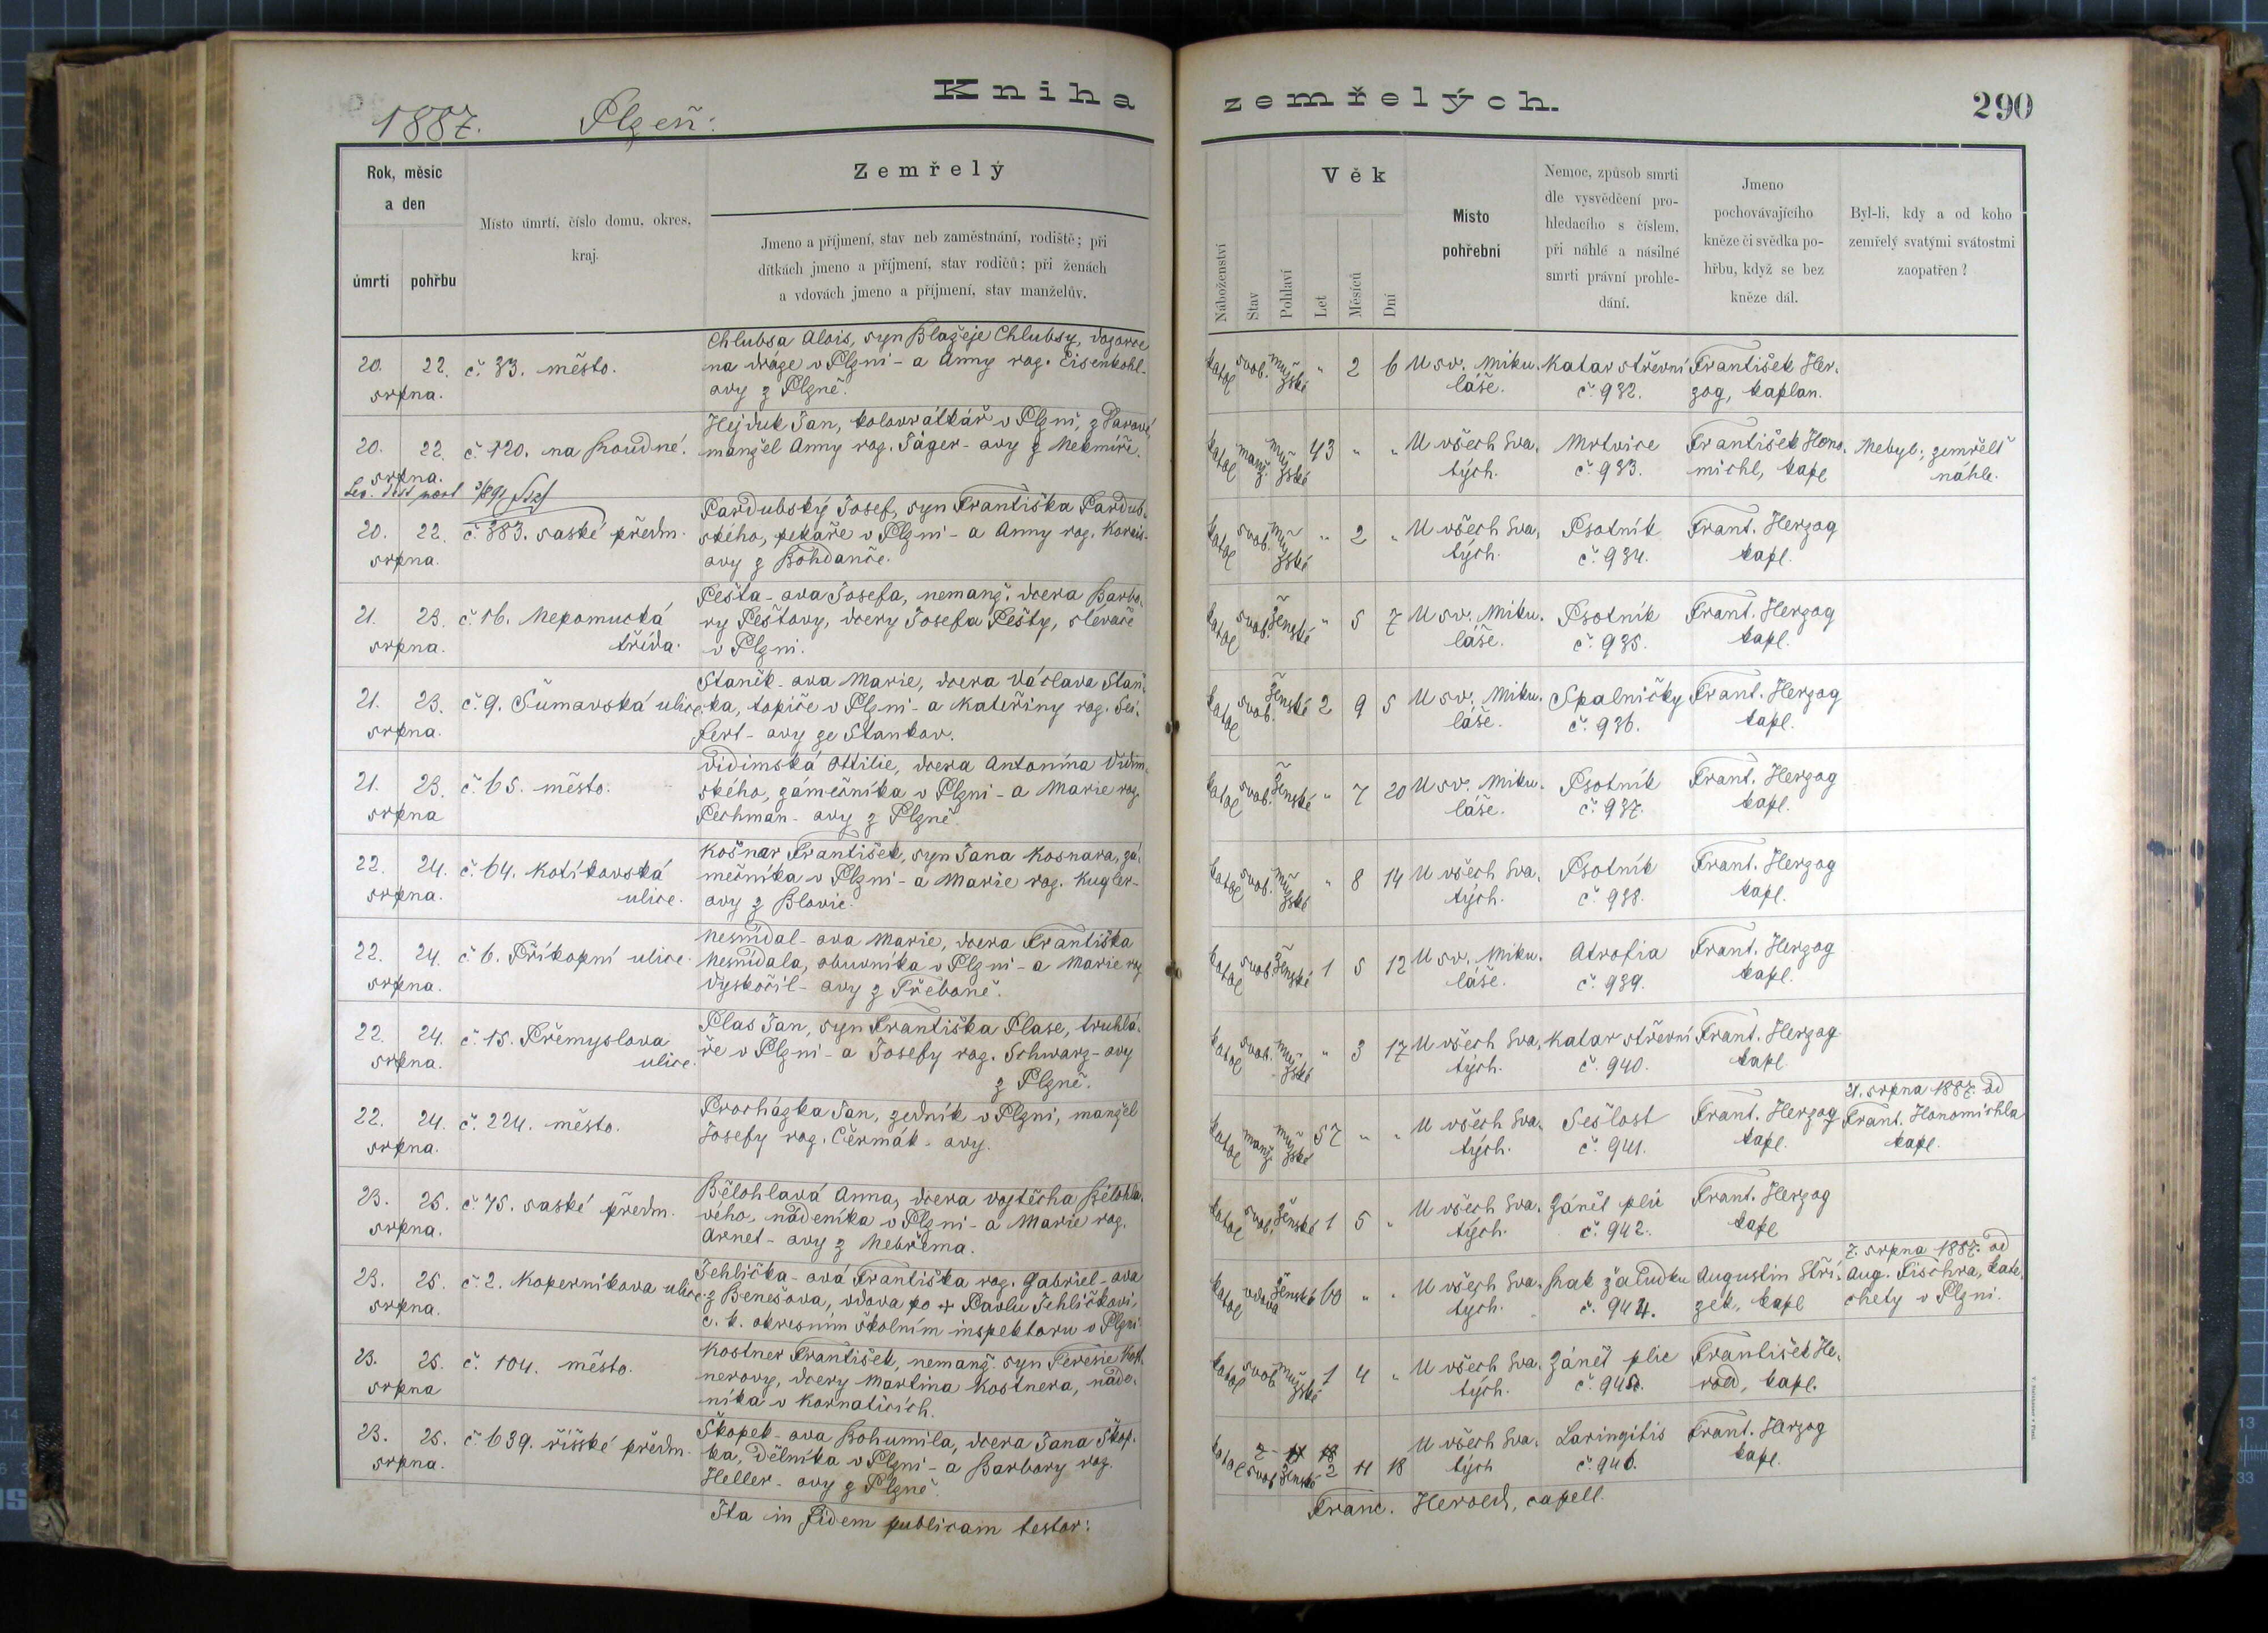 Kniha zemřelých.
290
1887. Plzeň:
Rok, měsíc
a den
úmrtí
pohřbu
Místo úmrtí, číslo domu, okres,
kraj.
Zemřelý
Jmeno a příjmení, stav neb zaměstnání, rodiště; při
dítkách jmeno a příjmení, stav rodičů; při ženách
a vdovách jmeno a příjmení, stav manželův.
Náboženství
Stav
Pohlaví
Věk
Let
Měsíců
Dní
Místo
pohřební
Nemoc, způsob smrti
dle vysvědčení pro-
hledacího s číslem,
při náhlé a násilné
smrti právní prohle-
dání.
Jmeno
pochovávajícího
kněze či svědka po-
hřbu, když se bez
kněze dál.
Byl-li, kdy a od koho
zemřelý svatými svátostmi
zaopatřen?
20. 22. srpna.
č. 33. město.
Chlubsa Alois, syn Blažeje Chlubsy, vozovce
na dráze v Plzni - a Anny roz. Eisenkohl-
ovy z Plzně.
katol svob. mužské " 2 6
U sv. Miku-
láše.
Katar střevní
č. 932.
František Her-
zog, kaplan.
20. 22. srpna.
č. 120. na Roudné.
Hejduk Jan, kolovrátkář v Plzni,
manžel Anny roz. Jäger-ovy z Nekmíře.
katol manž. mužské 43 " "
U všech Sva-
tých.
Mrtvice
č. 933.
František Hono-
michl, kapl
Nebyl; zemřelť
náhle.
20. 22. srpna.
č. 383. saské předm.
Pardubský Josef, syn Františka Pardub-
ského, pekaře v Plzni - a Anny roz.
ovy z Bohdanče.
katol svob. mužské " 2 "
U všech Sva-
tých.
Psotník
č. 934.
Frant. Herzog
kapl.
21. 23. srpna.
č. 16. Nepomucká
třída.
Pešta-ova Josefa, nemanž. dcera Barbo-
ry Peštovy, dcery Josefa Pešty, slévače
v Plzni.
katol svob. ženské " 5 7
U sv. Miku-
láše.
Psotník
č. 935.
Frant. Herzog
kapl.
21. 23. srpna.
č. 9. Šumavská ulice.
Staněk-ova Marie, dcera Václava Staň-
ka, topiče v Plzni - a Kateřiny roz. Sei-
fert-ovy ze Stankov.
katol svob. ženské 2 9 5
U sv. Miku-
láše.
Spalničky
č. 936.
Frant. Herzog
kapl.
21. 23. srpna
č. 65. město.
Vidimská Ottilie, dcera Antonína Vidim-
ského, zámečníka v Plzni - a Marie roz.
Pechman-ovy z Plzně.
katol svob. ženské " 7 20
U sv. Miku-
láše.
Psotník
č. 937.
Frant. Herzog
kapl.
22. 24. srpna.
č. 64. Kotíkovská
ulice.
Košnar František, syn Jana Kosnara, zá-
mečníka v Plzni - a Marie roz. Kugler-
ovy z Blovic.
katol svob. mužské " 8 14
U všech Sva-
tých.
Psotník
č. 938.
Frant. Herzog
kapl.
22. 24. srpna.
č. 6. Příkopní ulice.
Nesnídal-ova Marie, dcera Františka
Nesnídala, obuvníka v Plzni - a Marie roz
Vyskočil-ovy z Třeboně.
katol svob. ženské 1 5 12
U sv. Miku-
láše.
Atrofia
č. 939.
Frant. Herzog
kapl.
22. 24. srpna.
č. 15. Přemyslova
ulice.
Plas Jan, syn Františka Plase, truhlá-
ře v Plzni - a Josefy roz. Schwarz-ovy
z Plzně.
katol svob. mužské " 3 17
U všech Sva-
tých.
Katar střevní
č. 940.
Frant. Herzog
kapl.
22. 24. srpna.
č. 224. město.
Procházka Jan, zedník v Plzni, manžel
Josefy roz. Čermák-ovy.
katol manž. mužské 57 " "
U všech Sva-
tých.
Sešlost
č. 941.
Frant. Herzog
kapl.
21. srpna 1887. od
Frant. Honomichla
kapl.
23. 25. srpna.
č. 75. saské předm.
Bělohlavá Anna, dcera Vojtěcha Bělohla-
vého, nádeníka v Plzni - a Marie roz.
Arnet-ovy z Nebřema.
katol svob. ženské 1 5 "
U všech Sva-
tých.
Zánět plic
č. 942.
Frant. Herzog
kapl
23. 25. srpna.
č. 2. Kopernikova ulice.
Jehlička-ová Františka roz. Gabriel-ova
z Benešova, vdova po † Pavlu Jehličkovi,
c. k. okresním školním inspektoru v Plzni
katol vdova ženské 60 " "
U všech Sva-
tých.
Rak žaludku
č. 944.
Augustin Stří-
zek, kapl
7. srpna 1887. od
Aug. Fischra, kate-
chety v Plzni.
23. 25. srpna
č. 104. město.
Kostner František, nemanž. syn Terezie Kost-
nerovy, dcery Martina Kostnera, náde-
níka v Kornaticích.
katol svob mužské 1 4 "
U všech Sva-
tých.
Zánět plic
č. 945.
František He-
rold, kapl.
23. 25. srpna.
č. 639. říšské předm.
Škopek-ova Bohumila, dcera Jana Škop-
ka, dělníka v Plzni - a Barbory roz.
Heller-ovy z Plzně.
katol svob ženské 2 11 18
U všech Sva-
tých
Laringitis
č. 946.
Frant. Herzog
kapl.
Ita in fidem publicam testor:
Franc. Herold, capell.